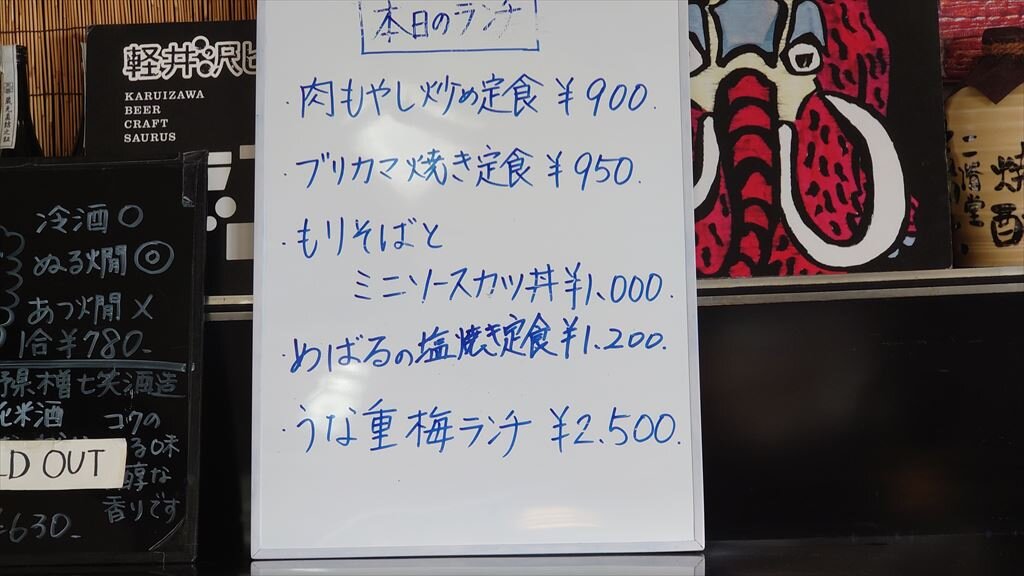 本日のランチ
・肉もやし炒め定食 ¥900.
・ブリカマ焼き定食 ¥950.
・もりそばと
ミニソースカツ丼 ¥1,000.
・めばるの塩焼き定食 ¥1.200.
・うな重 梅ランチ ¥2.500.
軽井沢ビ
KARUIZAWA
BEER
CRAFT
SAURUS
冷酒○
ぬる燗◎
あつ燗×
1合¥780-
野県木曽七笑酒造
純米酒
コクの
る味
LD OUT
醇な
香りです
¥630-
二階堂
焼酎